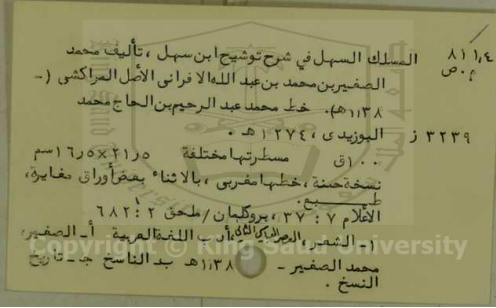 ٨١١,٤
م . ص
المسلك السهل في شرح توشيح ابن سهل ، تأليف محمد
الصغير بن محمد بن عبد الله الافراني الأصل المراكشي ( -
١١٣٨هـ). خط محمد عبد الرحيم بن الحاج محمد
٣٢٣٩ ز البوزيدي ، ١٢٧٤ هـ .
١٠٠ق مسطرتها مختلفة ٢١٫٥×١٦٫٥سم
نسخة حسنة ، خطها مغربي ، بالاثناء بعض أوراق مغايرة ،
طبيع .
الاعلام ٧ : ٣٧ ، بروكلمان / ملحق ٢ : ٦٨٢
١- الشعر ، أدب اللغة العربية أ- الصغير ،
محمد الصغير - ١١٣٨هـ ب- الناسخ ج- تاريخ
النسخ .
Copyright © King Saud University